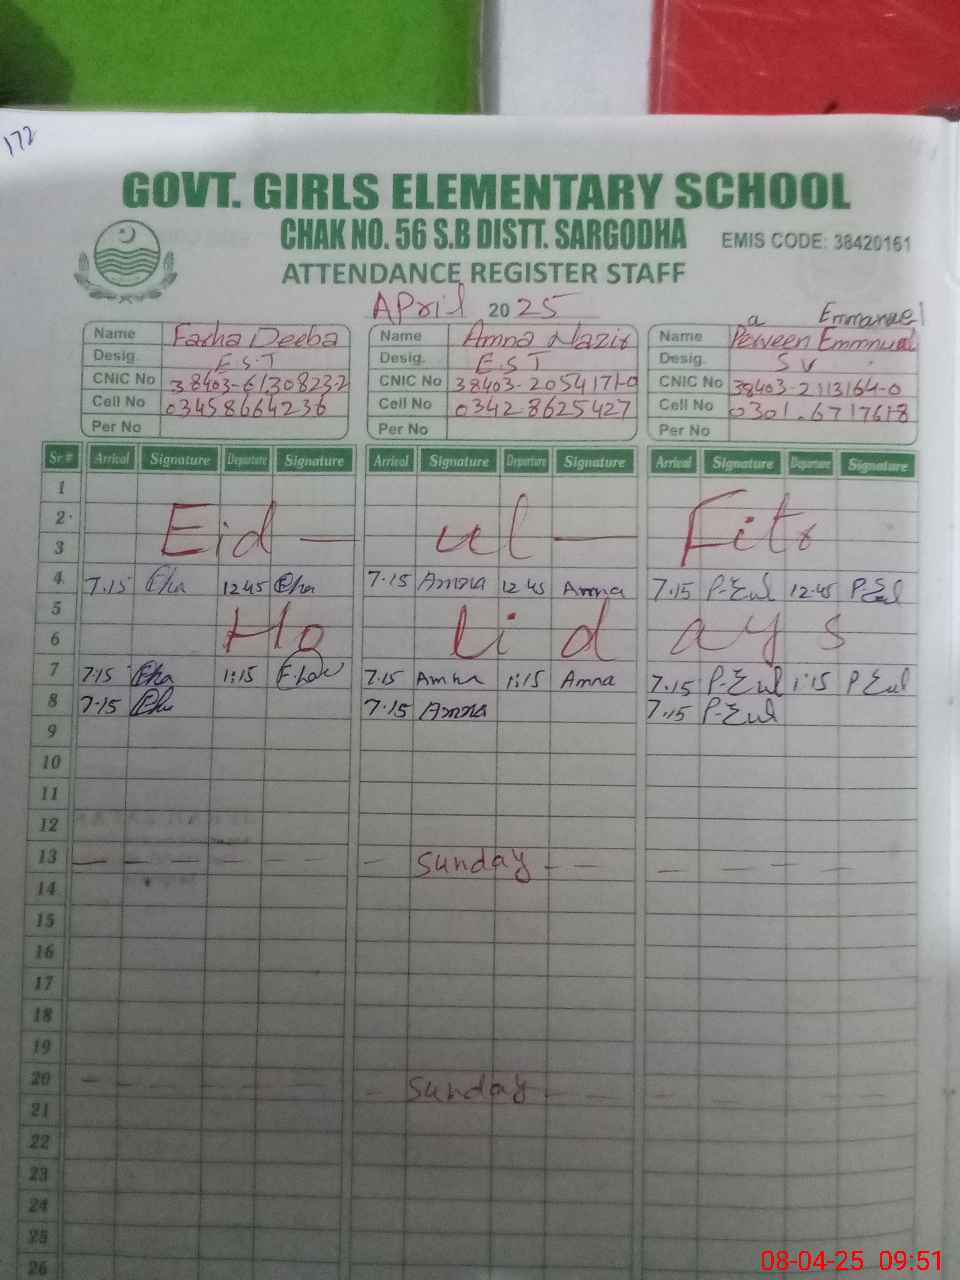 172
GOVT. GIRLS ELEMENTARY SCHOOL
CHAK NO. 56 S.B DISTT. SARGODHA
EMIS CODE: 38420161
ATTENDANCE REGISTER STAFF
APril 2025
a Emmanuel
Name Farha Deeba Name Amna Nazir Name Perveen Emmnual
Desig. E.S.T Desig. E.S.T Desig. S V
CNIC No 38403-61308232 CNIC No 38403-2054171-0 CNIC No 38403-2113164-0
Cell No 03458664236 Cell No 03428625427 Cell No 0301.6717618
Per No Per No Per No
Sr # Arrival Signature Departure Signature Arrival Signature Departure Signature Arrival Signature Departure Signature
1
2 Eid — ul — Fitr
3
4 7.15 12.45 7.15 Amna 12.45 Amna 7.15 P-Eul 12.45 P-Eul
5
6 Ho li d ay s
7 7:15 1:15 7.15 Amna 1:15 Amna 7.15 P-Eul 1:15 P Eul
8 7.15 7.15 Amna 7.15 P-Eul
9
10
11
12
13 — — — — — — — Sunday - — — — — —
14
15
16
17
18
19
20 - - - - - - - Sunday - - - - - -
21
22
23
24
25
26
08-04-25 09:51